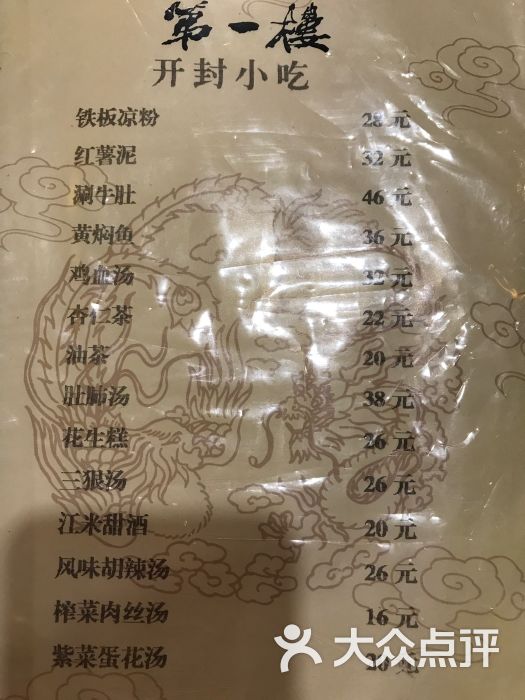 第一樓
开封小吃
铁板凉粉 28元
红薯泥 32元
涮牛肚 46元
黄焖鱼 36元
鸡血汤 32元
杏仁茶 22元
油茶 20元
肚肺汤 38元
花生糕 26元
三狠汤 26元
江米甜酒 20元
风味胡辣汤 26元
榨菜肉丝汤 16元
紫菜蛋花汤 20元
大众点评